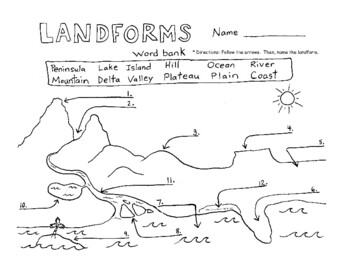 LANDFORMS Name
word bank * Directions: Follow the arrows. Then, name the landform.
Peninsula Lake Island Hill Ocean River
Mountain Delta Valley Plateau Plain Coast
1.
2.
3.
4.
5.
11.
12.
6.
10.
7.
9.
8.